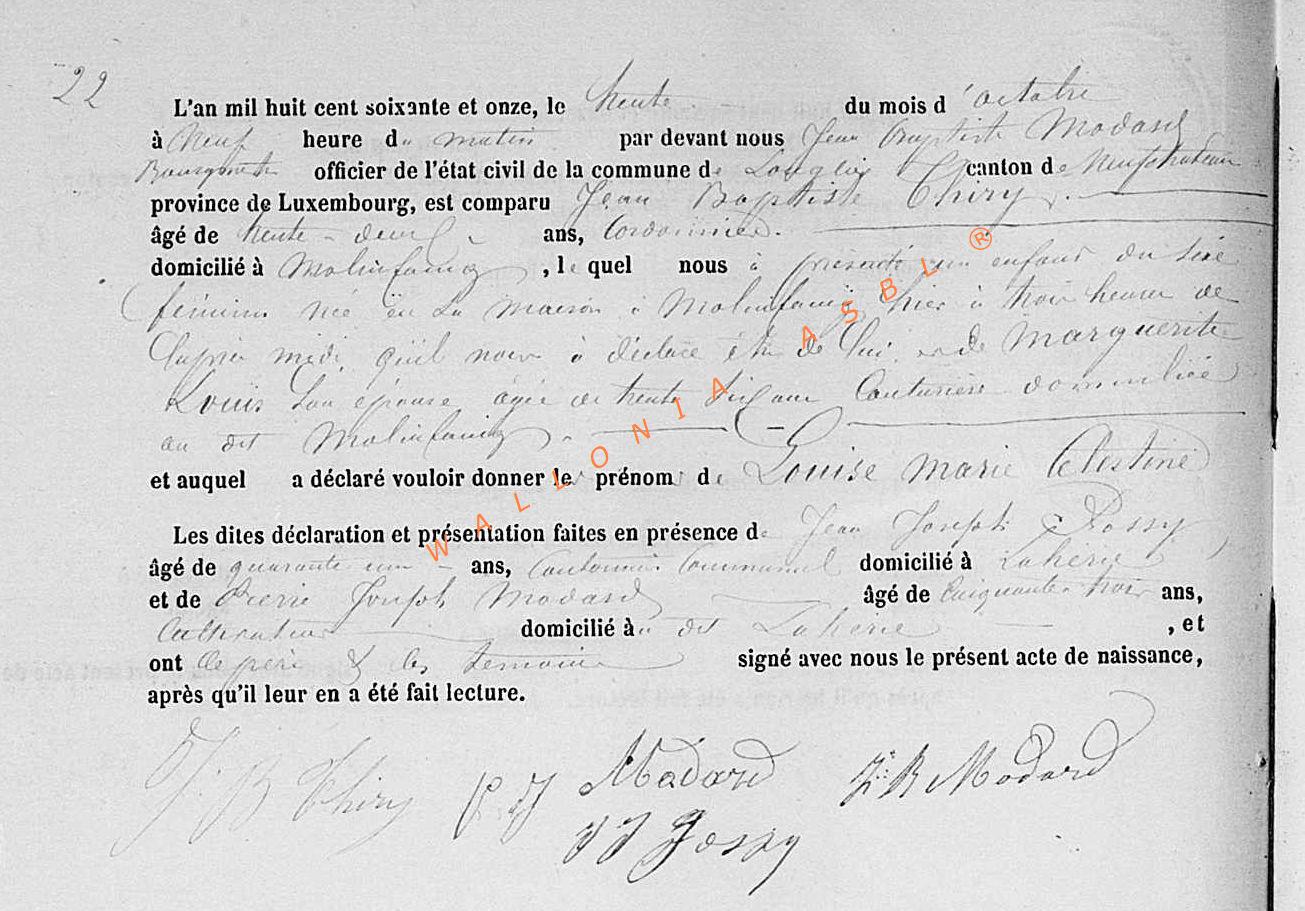 22
L'an mil huit cent soixante et onze, le trente du mois d'octobre
à Neuf heure du matin par devant nous Jean Baptiste Modard
Bourgmestre officier de l'état civil de la commune de Longlier canton de Neufchateau
province de Luxembourg, est comparu Jean Baptiste Thiry
âgé de trente-deux ans, Cordonnier.
domicilié à Molinfaing, lequel nous à présenté un enfant du sexe
féminin née en sa maison à Molinfaing hier à trois heures de
l'après midi, qu'il nous à déclaré être de lui et de Marguerite
Louis son épouse âgée de trente six ans Couturière domiciliée
au dit Molinfaing.
et auquel a déclaré vouloir donner les prénoms de Louise Marie Célestine
Les dites déclaration et présentation faites en présence de Jean Joseph
âgé de quarante un ans, Cantonnier Communal domicilié à Laherie
et de Pierre Joseph Modard âgé de Cinquante-trois ans,
Cultivateur domicilié à au dit Laherie, et
ont le père & les temoins signé avec nous le présent acte de naissance,
après qu'il leur en a été fait lecture.
J. B Thiry P. J Modard J. B Modard
J J
WALLONIA ASBL ®